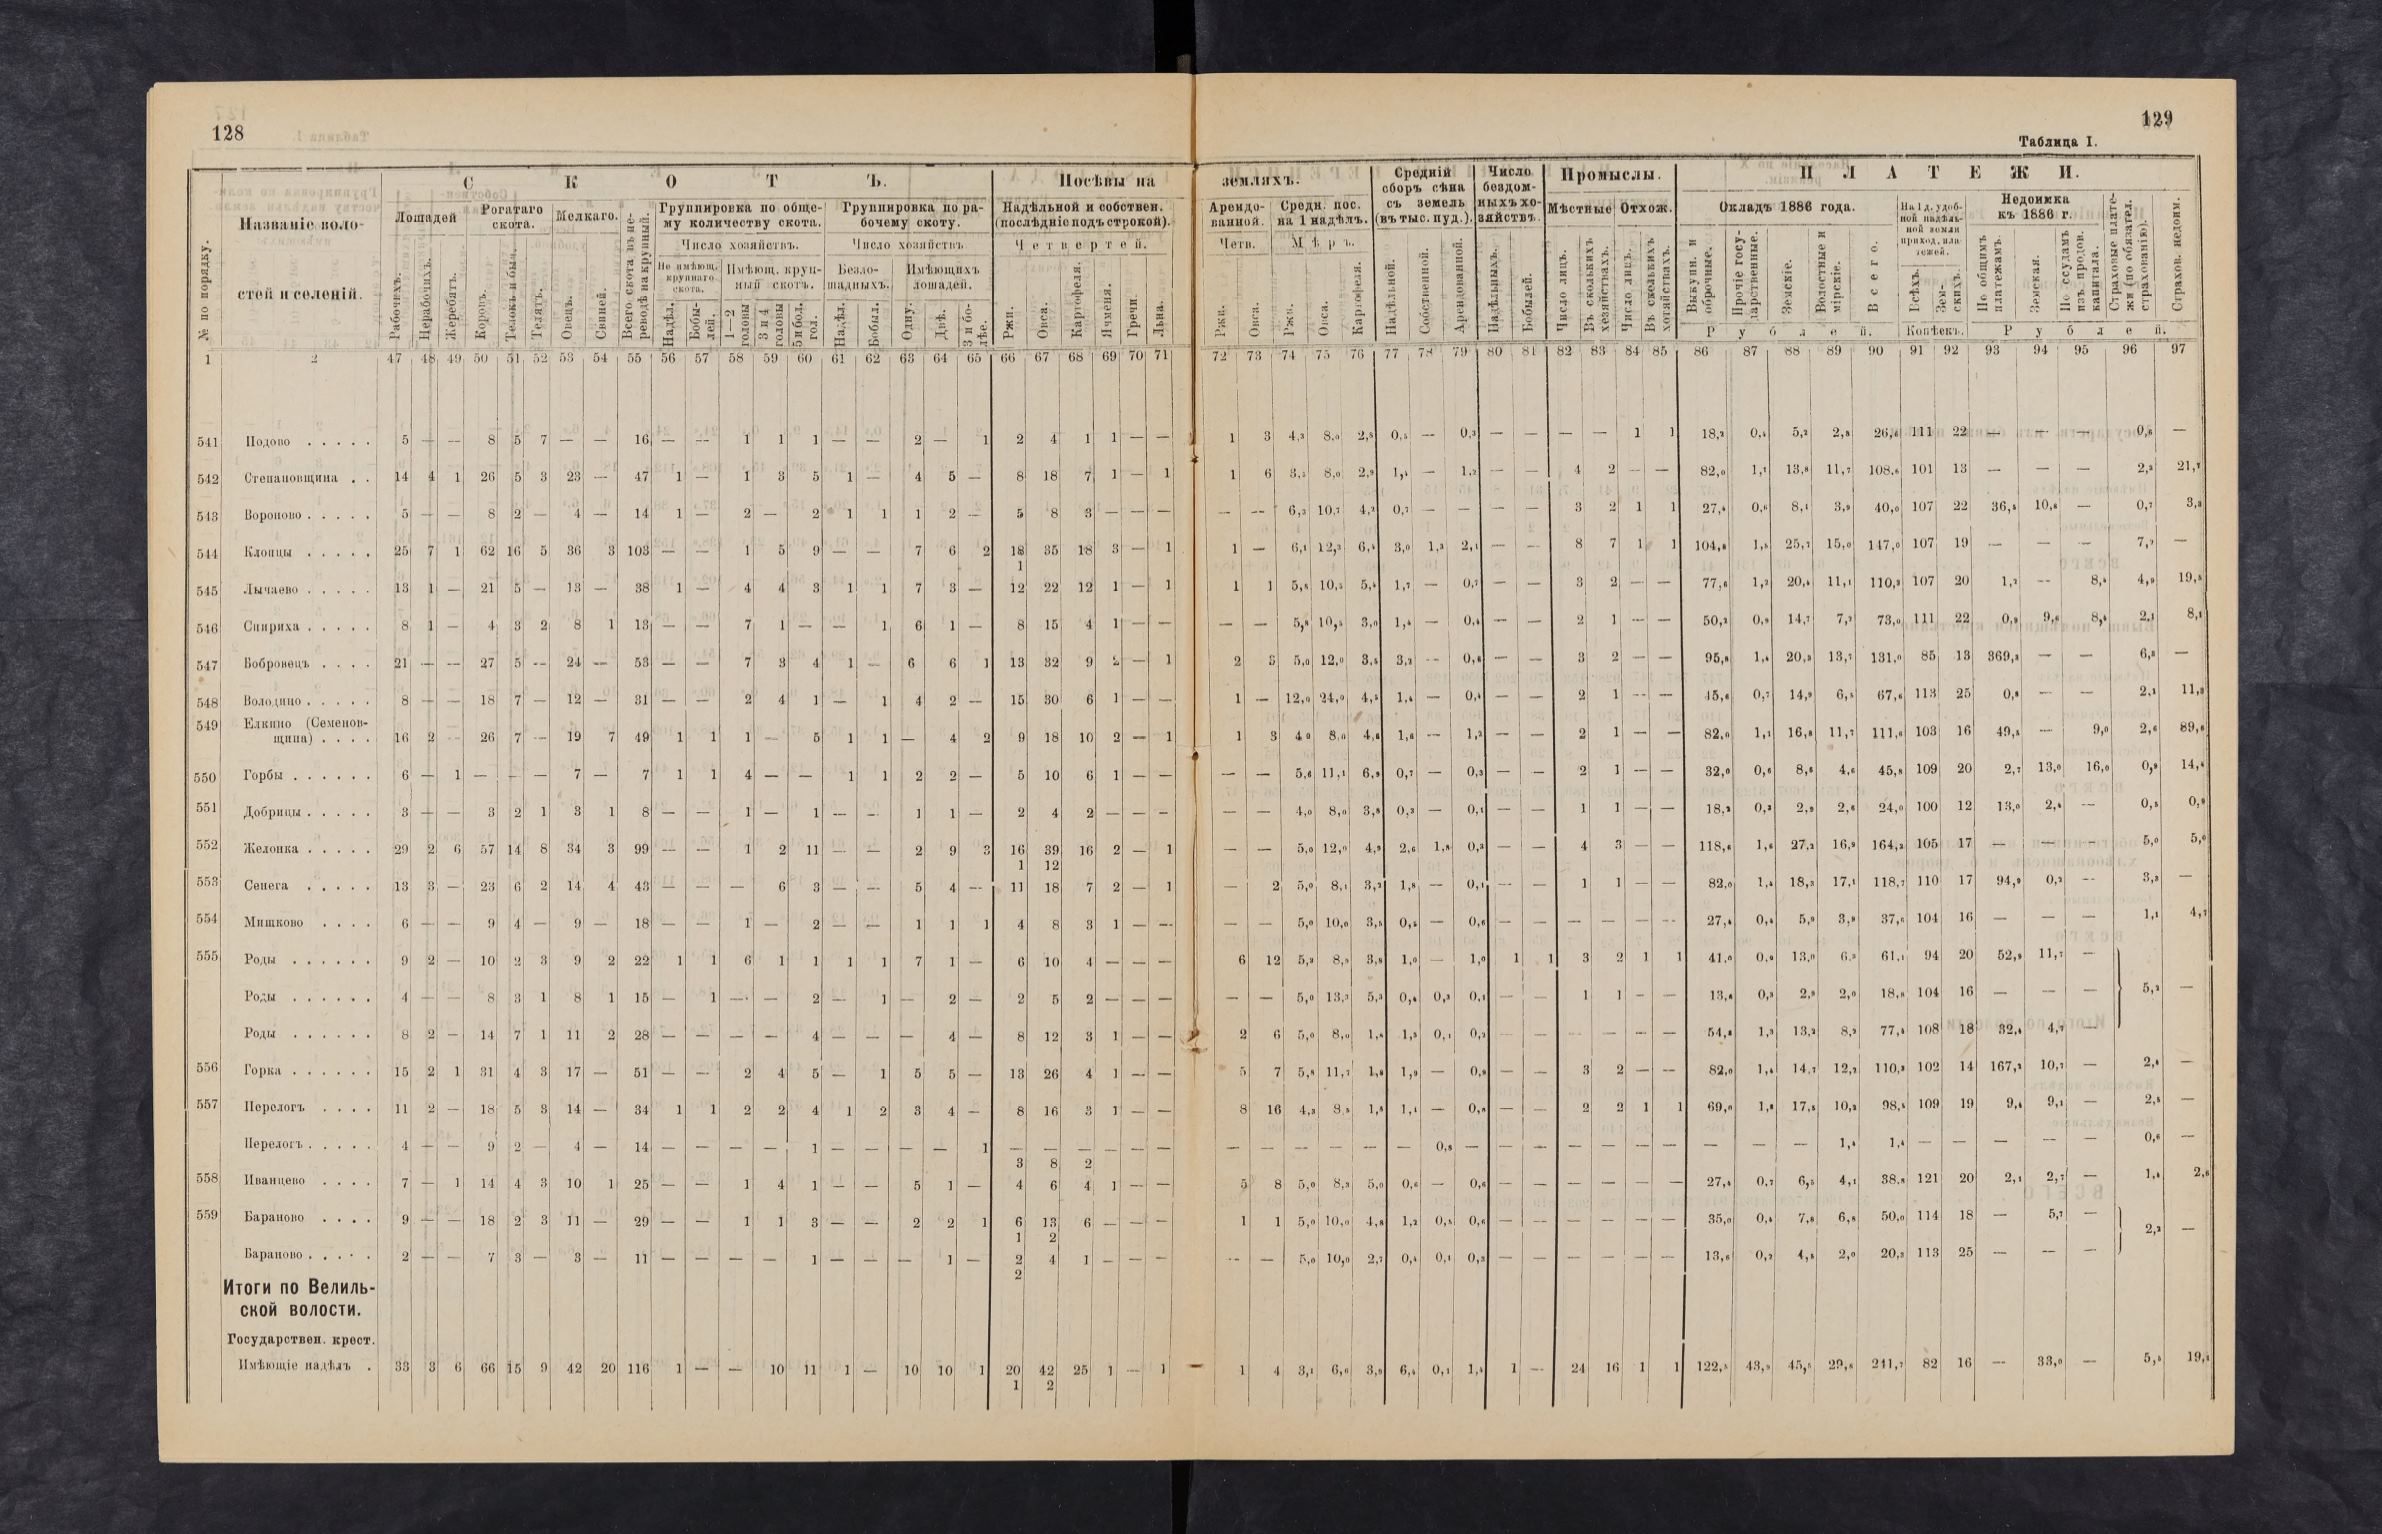 128
129
Таблица I.
№ по порядку.
Названіе воло-
стей и селеній.
С К О Т Ъ.
Лошадей
Рогатаго
скота.
Мелкаго.
Рабочихъ.
Нерабочихъ.
Жеребятъ.
Коровъ.
Телокъ и быч.
Телятъ.
Овецъ.
Свиней.
Всего скота въ пе-
реводѣ на крупный.
Группировка по обще-
му количеству скота.
Число хозяйствъ.
Не имѣющ.
крупнаго
скота.
Имѣющ. круп-
ный скотъ.
Надѣл.
Бобы-
лей.
1—2
головы
3 и 4
головы
5 и бол.
гол.
Группировка по ра-
бочему скоту.
Число хозяйствъ
Безло-
шадныхъ.
Имѣющихъ
лошадей.
Надѣл.
Бобыл.
Одну.
Двѣ.
3 и бо-
лѣе.
Посѣвы на
земляхъ.
Надѣльной и собствен.
(послѣдніе подъ строкой).
Четвертей.
Ржи.
Овса.
Картофеля.
Ячменя.
Гречи.
Льна.
Арендо-
ванной.
Четв.
Ржи.
Овса.
Средн. пос.
на 1 надѣлъ.
Мѣръ.
Ржи.
Овса.
Картофеля.
Средній
сборъ сѣна
съ земель
(въ тыс. пуд.).
Надѣльной.
Собственной.
Арендованной.
Число
бездом-
ныхъ хо-
зяйствъ.
Надѣльныхъ.
Бобылей.
Промыслы.
Мѣстные
Отхож.
Число лицъ.
Въ сколькихъ
хозяйствахъ.
Число лицъ.
Въ сколькихъ
хозяйствахъ.
П Л А Т Е Ж И.
Окладъ 1886 года.
Выкупн. и
оброчные.
Прочіе госу-
дарственные.
Земскіе.
Волостные и
мірскіе.
Всего.
Рублей.
На 1 д. удоб-
ной надѣль-
ной земли
приход. пла-
тежей.
Всѣхъ.
Зем-
скихъ.
Копѣекъ.
Недоимка
къ 1886 г.
По общимъ
платежамъ.
Земская.
По ссудамъ
изъ продов.
капитала.
Страховые плате-
жи (по обязател.
страхованію).
Страхов. недоим.
Рублей.
1 2 47 48 49 50 51 52 53 54 55 56 57 58 59 60 61 62 63 64 65 66 67 68 69 70 71 72 73 74 75 76 77 78 79 80 81 82 83 84 85 86 87 88 89 90 91 92 93 94 95 96 97
541 Подово . . . . . 5 — — 8 5 7 — — 16 — — 1 1 1 — — 2 — 1 2 4 1 1 — — 1 3 4,3 8,0 2,5 0,5 — 0,3 — — — — 1 1 18,2 0,4 5,2 2,8 26,6 111 22 — — — 0,6 —
542 Степановщина . . 14 4 1 26 5 3 23 — 47 1 — 1 3 5 1 — 4 5 — 8 18 7 1 — 1 1 6 3,5 8,0 2,9 1,4 — 1,2 — — 4 2 — — 82,0 1,1 13,8 11,7 108,6 101 13 — — — 2,2 21,7
543 Вороново . . . . . 5 — — 8 2 — 4 — 14 1 — 2 — 2 1 1 1 2 — 5 8 3 — — — — — 6,3 10,7 4,2 0,7 — — — — 3 2 1 1 27,4 0,6 8,1 3,9 40,0 107 22 36,5 10,8 — 0,7 3,3
544 Клопцы . . . . . 25 7 1 62 16 5 36 3 103 — — 1 5 9 — — 7 6 2 18 35 18 3 — 1 1 — 6,1 12,3 6,4 3,0 1,3 2,1 — — 8 7 1 1 104,8 1,5 25,7 15,0 147,0 107 19 — — — 7,2 —
1
545 Лычаево . . . . . 13 1 — 21 5 — 13 — 38 1 — 4 4 3 1 1 7 3 — 12 22 12 1 — 1 1 1 5,8 10,5 5,4 1,7 — 0,7 — — 3 2 — — 77,6 1,2 20,4 11,1 110,3 107 20 1,2 — 8,4 4,9 19,5
546 Спириха . . . . . 8 1 — 4 3 2 8 1 13 — — 7 1 — — 1 6 1 — 8 15 4 1 — — — — 5,8 10,5 3,0 1,4 — 0,4 — — 2 1 — — 50,2 0,9 14,7 7,2 73,0 111 22 0,9 9,6 8,4 2,1 8,1
547 Бобровецъ . . . . 21 — — 27 5 — 24 — 53 — — 7 3 4 1 — 6 6 1 13 32 9 2 — 1 2 3 5,0 12,0 3,5 3,2 — 0,8 — — 3 2 — — 95,8 1,4 20,3 13,7 131,0 85 13 369,3 — — 6,3 —
548 Володино . . . . . 8 — — 18 7 — 12 — 31 — — 2 4 1 — 1 4 2 — 15 30 6 1 — — 1 — 12,0 24,0 4,5 1,4 — 0,4 — — 2 1 — — 45,6 0,7 14,9 6,5 67,6 113 25 0,8 — — 2,1 11,3
549 Елкино (Семенов-
щина) . . . . 16 2 — 26 7 — 19 7 49 1 1 1 — 5 1 1 — 4 2 9 18 10 2 — 1 1 3 4 0 8,0 4,6 1,6 — 1,2 — — 2 1 — — 82,0 1,1 16,8 11,7 111,6 103 16 49,5 — 9,0 2,6 89,6
550 Горбы . . . . . . 6 — 1 — — — 7 — 7 1 1 4 — — 1 1 2 2 — 5 10 6 1 — — — — 5,6 11,1 6,9 0,7 — 0,3 — — 2 1 — — 32,0 0,6 8,6 4,6 45,8 109 20 2,7 13,0 16,0 0,9 14,4
551 Добрицы . . . . . 3 — — 3 2 1 3 1 8 — — 1 — 1 — — 1 1 — 2 4 2 — — — — — 4,0 8,0 3,8 0,3 — 0,1 — — 1 1 — — 18,2 0,3 2,9 2,6 24,0 100 12 13,0 2,4 — 0,5 0,9
552 Желонка . . . . . 29 2 6 57 14 8 34 3 99 — — 1 2 11 — — 2 9 3 16 39 16 2 — 1 — — 5,0 12,0 4,9 2,6 1,8 0,3 — — 4 3 — — 118,6 1,6 27,2 16,9 164,3 105 17 — — — 5,0 5,0
1 12
553 Сенега . . . . . 13 3 — 23 6 2 14 4 43 — — — 6 3 — — 5 4 — 11 18 7 2 — 1 — 2 5,0 8,1 3,2 1,8 — 0,1 — — 1 1 — — 82,0 1,4 18,3 17,1 118,7 110 17 94,9 0,2 — 3,3 —
554 Мишково . . . . 6 — — 9 4 — 9 — 18 — — 1 — 2 — — 1 1 1 4 8 3 1 — — — — 5,0 10,0 3,5 0,5 — 0,6 — — — — — — 27,4 0,4 5,9 3,9 37,6 104 16 — — — 1,1 4,7
555 Роды . . . . . . 9 2 — 10 2 3 9 2 22 1 1 6 1 1 1 1 7 1 — 6 10 4 — — — 6 12 5,3 8,9 3,8 1,0 — 1,0 1 1 3 2 1 1 41,0 0,9 13,0 6,3 61,1 94 20 52,9 11,7 —
Роды . . . . . . 4 — — 8 3 1 8 1 15 — 1 — — 2 — 1 — 2 — 2 5 2 — — — — — 5,0 13,3 5,3 0,4 0,3 0,1 — — 1 1 — — 13,6 0,3 2,9 2,0 18,8 104 16 — — — 5,2 —
Роды . . . . . . 8 2 — 14 7 1 11 2 28 — — — — 4 — — — 4 — 8 12 3 1 — — 2 6 5,0 8,0 1,4 1,3 0,1 0,2 — — — — — — 54,8 1,3 13,2 8,2 77,5 108 18 32,4 4,7 —
556 Горка . . . . . . 15 2 1 31 4 3 17 — 51 — — 2 4 5 — 1 5 5 — 13 26 4 1 — — 5 7 5,8 11,7 1,8 1,9 — 0,9 — — 3 2 — — 82,0 1,4 14,7 12,2 110,3 102 14 167,2 10,7 — 2,4 —
557 Перелогъ . . . . 11 2 — 18 5 3 14 — 34 1 1 2 2 4 1 2 3 4 — 8 16 3 1 — — 8 16 4,3 8,5 1,8 1,1 — 0,8 — — 2 2 1 1 69,0 1,8 17,5 10,2 98,5 109 19 9,4 9,1 — 2,5 —
Перелогъ . . . . . 4 — — 9 2 — 4 — 14 — — — — 1 — — — — 1 — — — — — — — — — — — — 0,8 — — — — — — — — — — 1,4 1,4 — — — — — 0,6 —
3 8 2
558 Иванцево . . . . 7 — 1 14 4 3 10 1 25 — — 1 4 1 — — 5 1 — 4 6 4 1 — — 5 8 5,0 8,3 5,0 0,6 — 0,6 — — — — — — 27,4 0,7 6,5 4,1 38,8 121 20 2,1 2,7 — 1,4 2,6
559 Бараново . . . . 9 — — 18 2 3 11 — 29 — — 1 1 3 — — 2 2 1 6 13 6 — — — 1 1 5,0 10,0 4,8 1,2 0,5 0,6 — — — — — — 35,0 0,4 7,8 6,8 50,0 114 18 — 5,7 —
1 2 2,2 —
Бараново . . . . . 2 — — 7 3 — 3 — 11 — — — — 1 — — — 1 — 2 4 1 — — — — — 5,0 10,0 2,7 0,4 0,1 0,3 — — — — — — 13,6 0,2 4,5 2,0 20,3 113 25 — — —
2
Итоги по Велиль-
ской волости.
Государствен. крест.
Имѣющіе надѣлъ . 33 3 6 66 15 9 42 20 116 1 — — 10 11 1 — 10 10 1 20 42 25 1 — 1 1 4 3,1 6,6 3,9 6,4 0,1 1,4 1 — 24 16 1 1 122,5 43,9 45,5 29,8 241,7 82 16 — 33,0 — 5,5 19,2
1 2